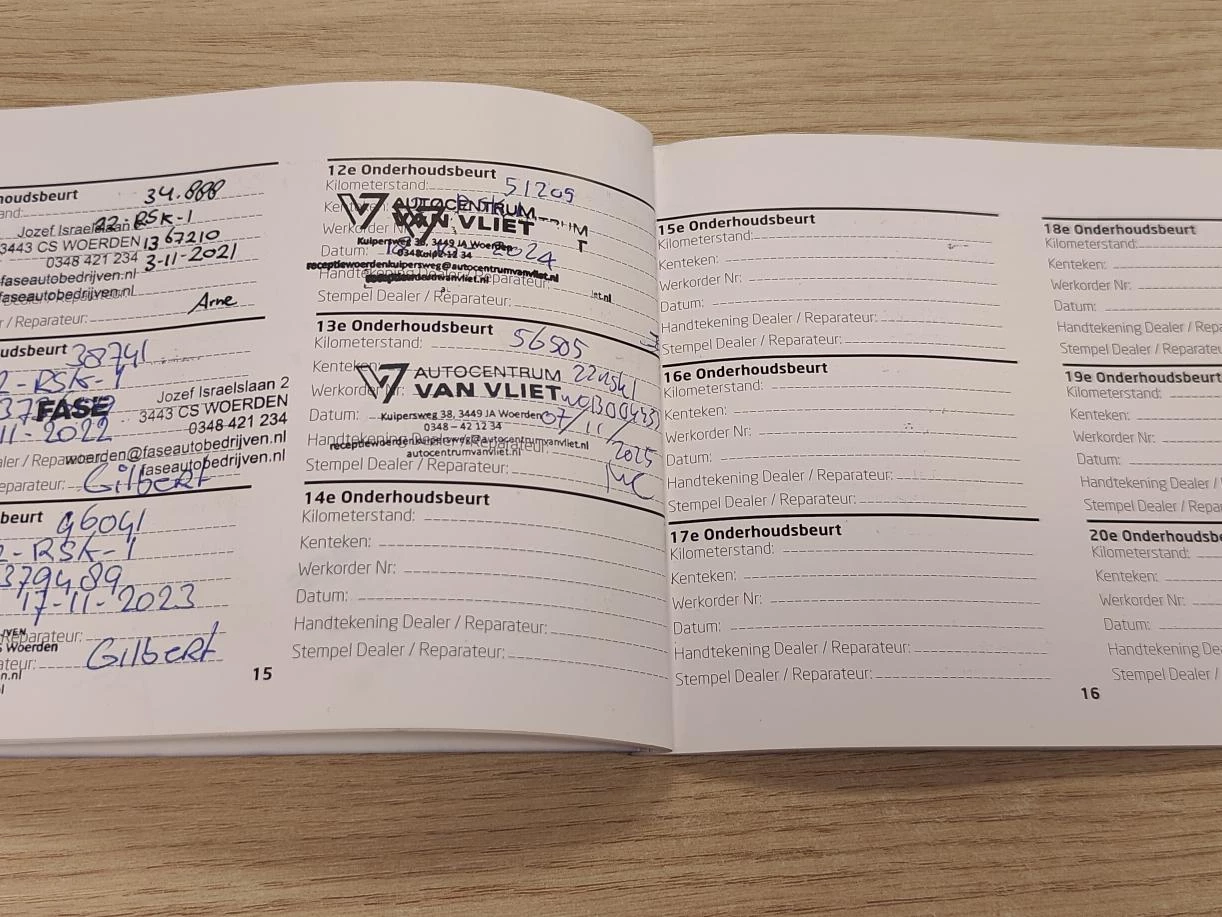 houdsbeurt 34.888
and:
Jozef Israelslaan 2
22-RSK-1
3443 CS WOERDEN 1367210
0348 421 234 3-11-2021
faseautobedrijven.nl
faseautobedrijven.nl
r / Reparateur: Arne
udsbeurt 38741
2-RSK-1
FASE
Jozef Israelslaan 2
3443 CS WOERDEN
0348 421 234
11-2022
woerden@faseautobedrijven.nl
faseautobedrijven.nl
eparateur: Gilbert
beurt 46041
2-RSK-1
379489
17-11-2023
Reparateur:
S Woerden
ateur: Gilbert
n.nl
15
12e Onderhoudsbeurt
Kilometerstand: 51209
AUTOCENTRUM
VAN VLIET
Kuipersweg 38, 3449 JA Woerden
Datum: 2024
receptiewoerdenkuipersweg@autocentrumvanvliet.nl
Handtekening Dealer / Reparateur:
Stempel Dealer / Reparateur:
13e Onderhoudsbeurt
Kilometerstand: 56505
Kenteken: 22rsk1
AUTOCENTRUM
VAN VLIET
Werkorder Nr:
Kuipersweg 38, 3449 JA Woerden
0348 – 42 12 34
Datum: 07/11/2025
Handtekening Dealer / Reparateur:
receptiewoerdenkuipersweg@autocentrumvanvliet.nl
autocentrumvanvliet.nl
Stempel Dealer / Reparateur:
14e Onderhoudsbeurt
Kilometerstand:
Kenteken:
Werkorder Nr:
Datum:
Handtekening Dealer / Reparateur:
Stempel Dealer / Reparateur:
15e Onderhoudsbeurt
Kilometerstand:
Kenteken:
Werkorder Nr:
Datum:
Handtekening Dealer / Reparateur:
Stempel Dealer / Reparateur:
16e Onderhoudsbeurt
Kilometerstand:
Kenteken:
Werkorder Nr:
Datum:
Handtekening Dealer / Reparateur:
Stempel Dealer / Reparateur:
17e Onderhoudsbeurt
Kilometerstand:
Kenteken:
Werkorder Nr:
Datum:
Handtekening Dealer / Reparateur:
Stempel Dealer / Reparateur:
16
18e Onderhoudsbeurt
Kilometerstand:
Kenteken:
Werkorder Nr:
Datum:
Handtekening Dealer / Repa
Stempel Dealer / Reparateu
19e Onderhoudsbeurt
Kilometerstand:
Kenteken:
Werkorder Nr:
Datum:
Handtekening Dealer /
Stempel Dealer / Repar
20e Onderhoudsbe
Kilometerstand:
Kenteken:
Werkorder Nr:
Datum:
Handtekening De
Stempel Dealer /